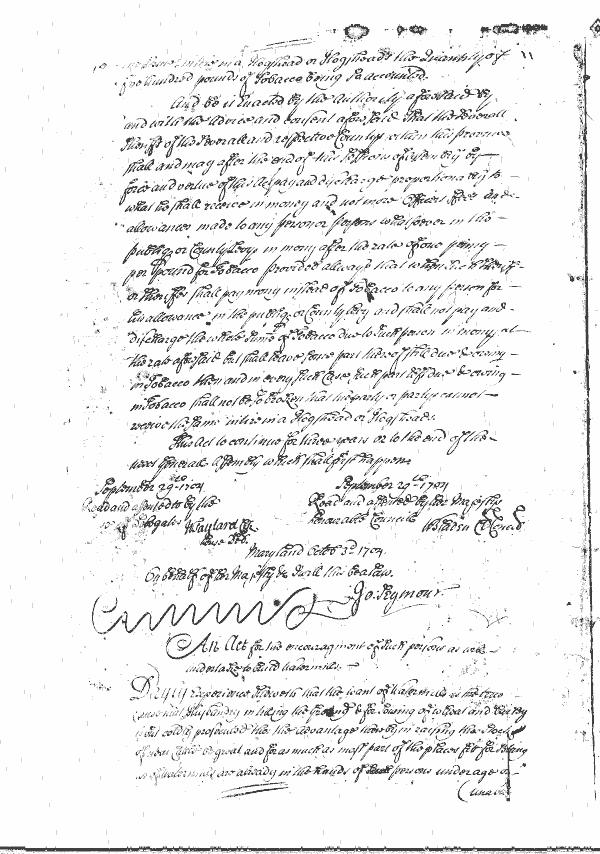 same intire in a Hogshead or Hogsheads the Quantity of
five hundred pounds of Tobacco being so accounted.
And be it Enacted by the Authority aforesaid by
and with the Advice and consent aforesaid that the severall
Sheriffs of the severall and respective Countys within this province
shall and may after the end of this Session of Assembly by
force and vertue of this Act pay and discharge proportionably to
what he shall receive in money and not more Officers fees and
allowances made to any person or persons whatsoever in the
publiq or County Levy in mony after the rate of one penny
per pound for Tobacco provided always that when such Sheriff
or Sheriffes shall pay mony instead of Tobacco to any person for
his allowance in the publiq or County Levy and shall not pay and
discharge the whole Sume of Tobacco due to such person in mony at
the rate aforesaid but shall leave some part thereof still due & owing
in Tobacco then and in every such Case such part left due & owing
in Tobacco shall not be so broken that the party or partys cannot
receive the same intire in a Hogshead or Hogsheads.
This Act to continue for three years or to the end of the
next Generall Assembly which shall first happen.
September 29th 1704
Read and assented to by the
Delegates
W Taylard Clk
House Del.
September 29th 1704
Read and assented by her Majestys
honourable Councill
W Bladen Cl Councl
Maryland Octob 3d 1704.
On behalf of her Majesty &c I will this be a Law.
Jo: Seymour
An Act for the encouragment of such persons as will
undertake to build Watermills.
Dayly experience sheweth that the want of Watermills is the
Husbandry in tilling the Ground & for sowing of wheat and Barley
the advantage thereby in raising the Stock
of neat Cattle be great and for as much as most part of the places fit for
of Watermills are already in the hands of such persons under age or
(unable